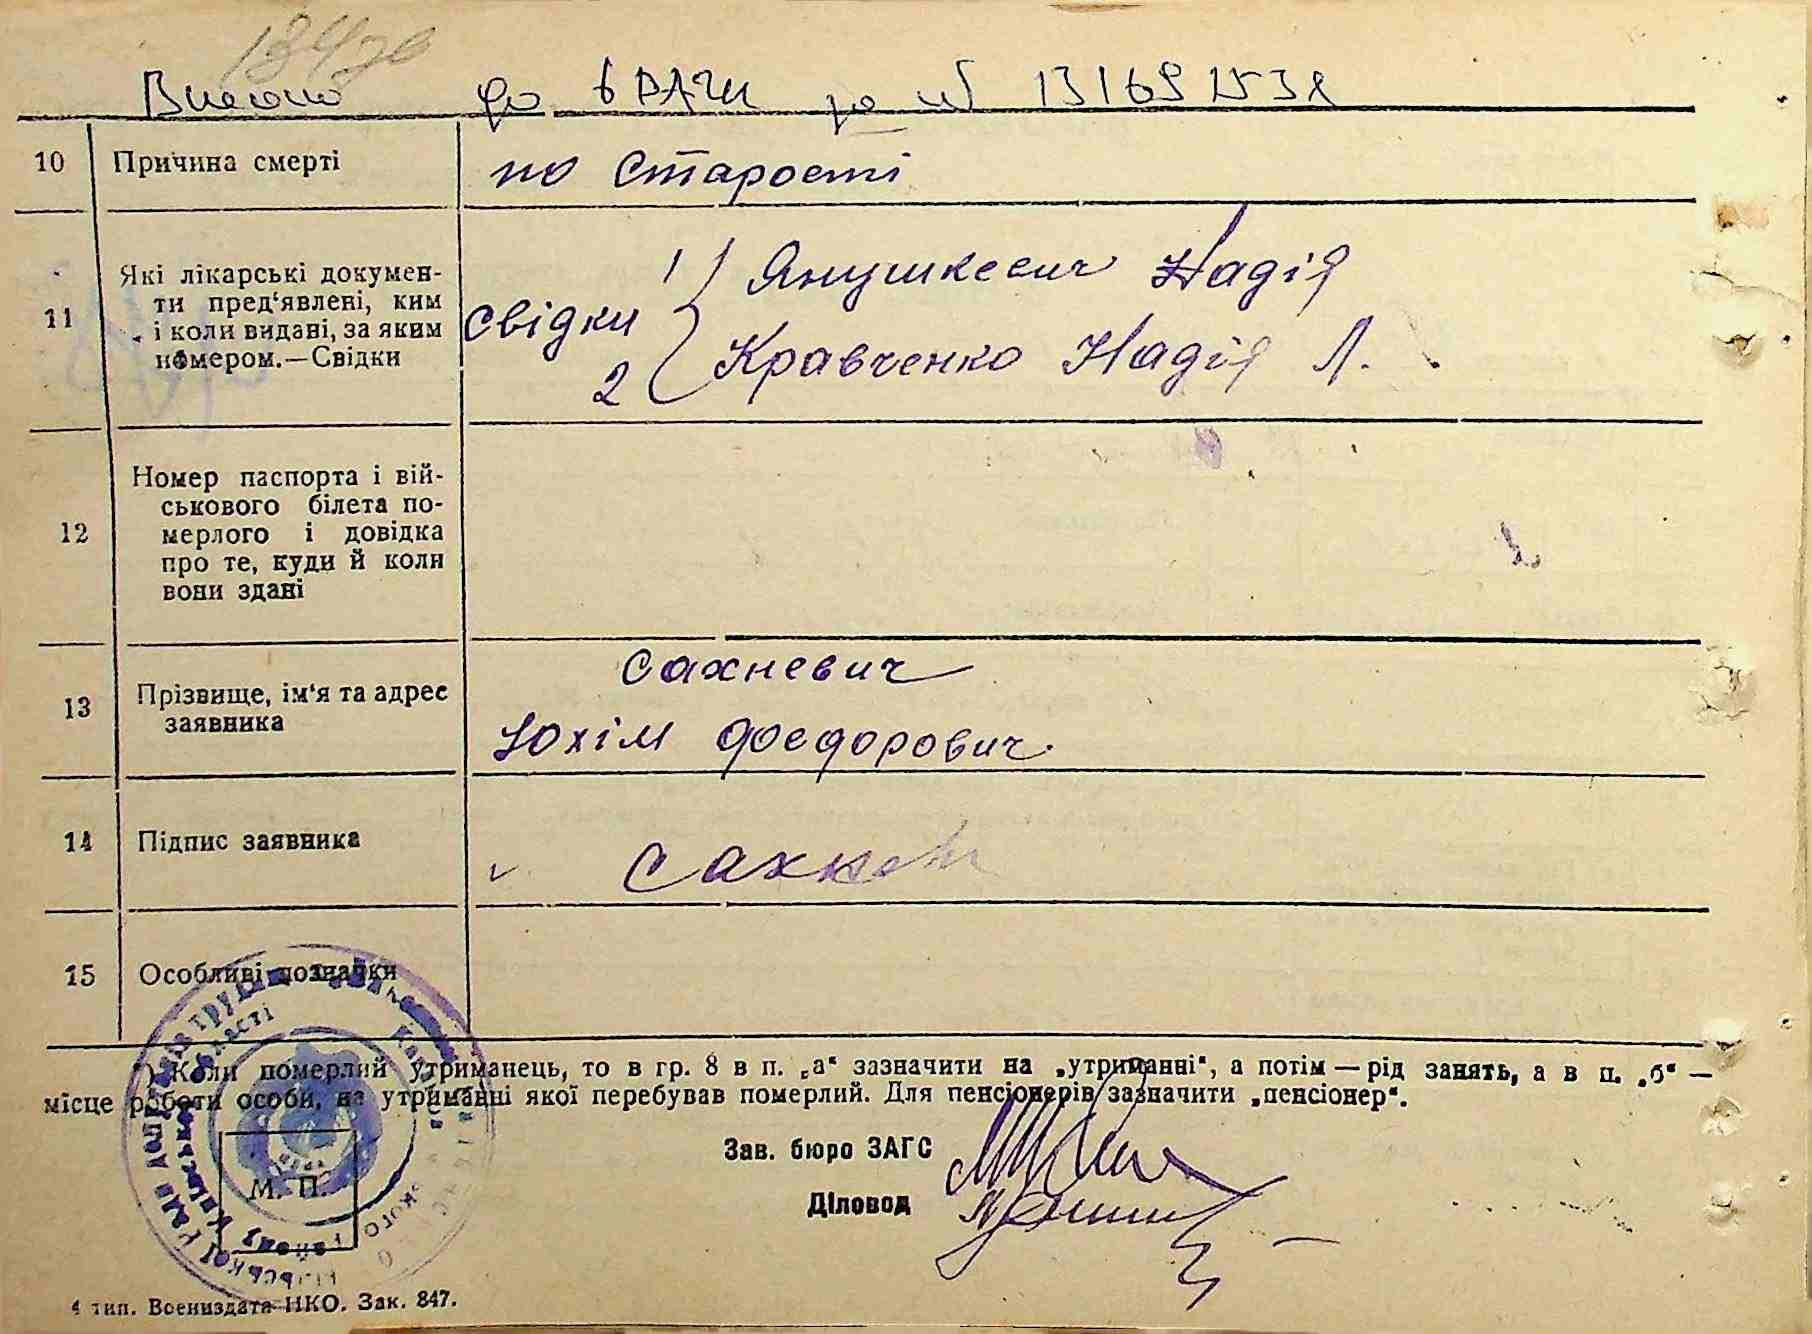 134
Внесено до ДРАЦС за № 13169253 я
10 Причина смерті по старості
11 Які лікарські документи пред'явлені, ким і коли видані, за яким номером.—Свідки
Які лікарські докумен-
ти пред‘явлені, ким
і коли видані, за яким
номером.—Свідки
свідки
1) Янушкевич Надія
2 Кравченко Надія Л.
12 Номер паспорта і вій-
ськового білета по-
мерлого і довідка
про те, куди й коли
вони здані
13 Прізвище, ім‘я та адрес
заявника
Сахневич
Юхім Фоедорович
14 Підпис заявника
15 Особливі позначки
) Коли померлий утриманець, то в гр. 8 в п. „а“ зазначити на „утриманні“, а потім — рід занять, а в п. „б“ —
місце роботи особи, на утриманні якої перебував померлий. Для пенсіонерів зазначити „пенсіонер“.
Зав. бюро ЗАГС
Діловод
М. П.
4 тип. Воениздата НКО. Зак. 847.